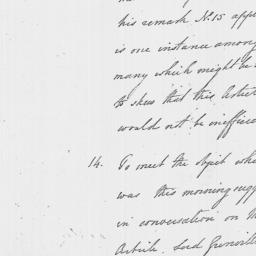 his remark No. 15 appe
is one instance among
many which might be
to shew that this Articl
would not be inefficac
14. To meet the object whi
was this morning sugg
in conversation on
Article. Lord Grenvill